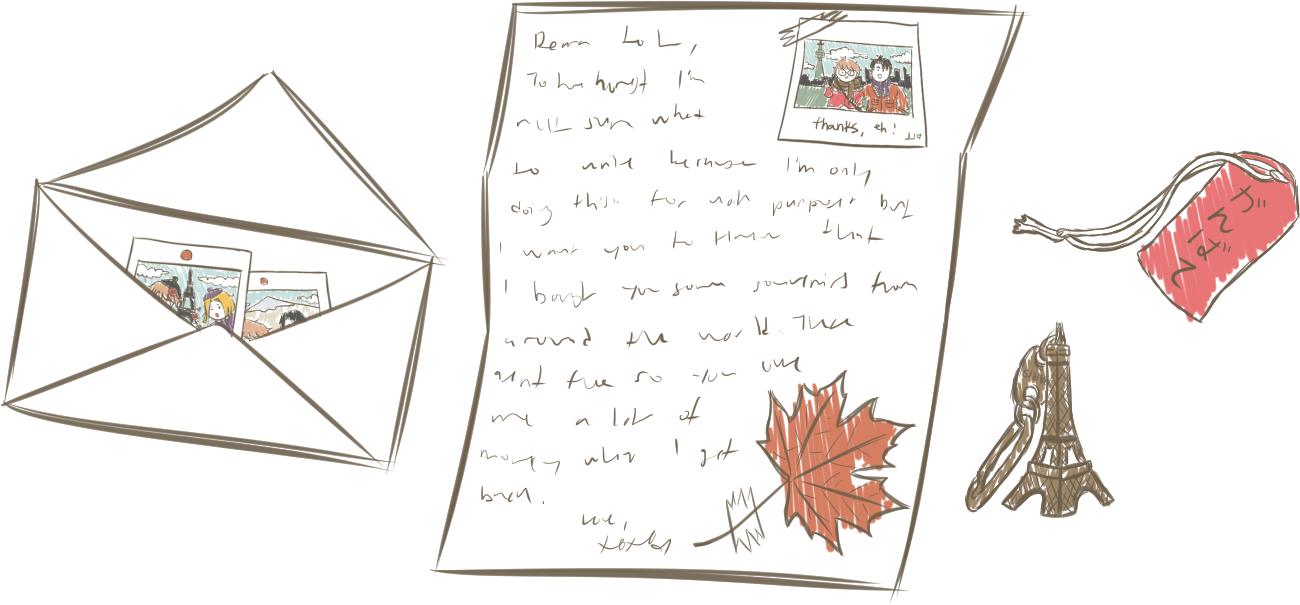 LoL,
To be honest I'm
not sure what
to write because I'm only
doing this for purposes but
I want you to know that
I bought you some souvenirs from
around the world. These
aint free so you owe
me a lot of
money when I get
back.
love,
thanks, eh!